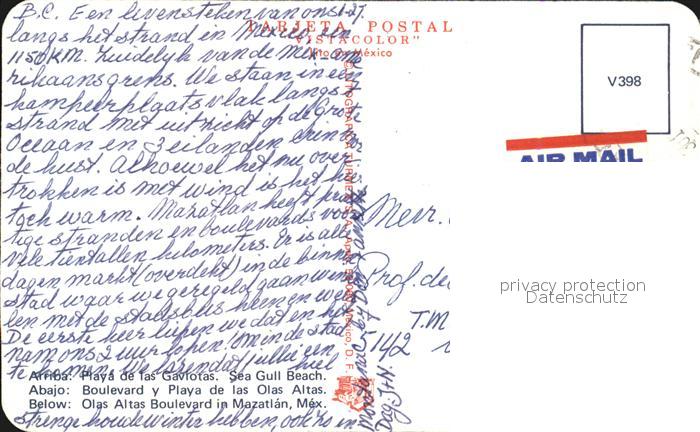 B.C. Een levensteken van ons 1-27.
langs het strand in Mexico, een
1150 KM. Zuidelyk van de Mex-Ame
rikaansgrens. We staan in een
kampeerplaats vlak langs t
strand met uitzicht op de Grote
Oceaan en 3 eilanden even voor
de kust. Alhoewel het nu over
trokken is met wind is het hier
toch warm. Mazatlan heeft prach
tige stranden en boulevards voor
vele tientallen kilometers. Er is alle
dagen markt (overdekt) in de binnen
stad waar we geregeld gaan win
len met de stadsbus heen en weer
De eerste keer liepen we dat en het
nam ons 2 uur lopen! om in de stad
te komen. We jullie een
strenge houde winter hebben, ook zo in
TARJETA POSTAL
"VISTACOLOR"
México
V398
AIR MAIL
Mevr.
Prof. de
T.M
5142
Arriba: Playa de las Gaviotas. Sea Gull Beach.
Abajo: Boulevard y Playa de las Olas Altas.
Below: Olas Altas Boulevard in Mazatlán, Méx.
México, D. F.
Dag J+N.
privacy protection
Datenschutz